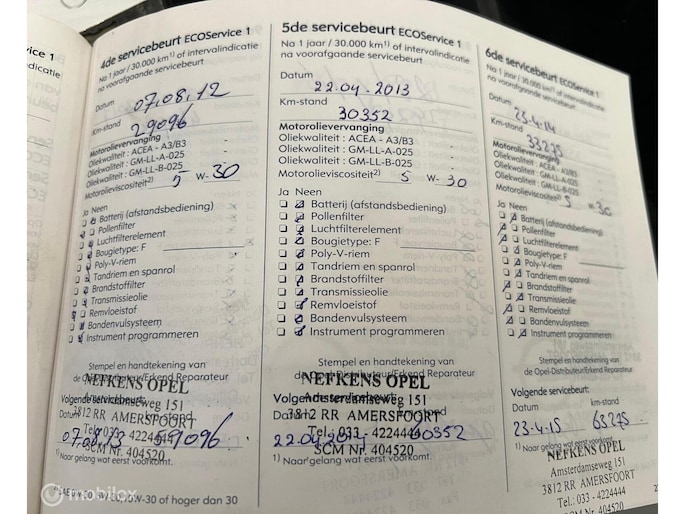 vice 1
dicatie
4de servicebeurt ECOService 1
Na 1 jaar / 30.000 km1) of intervalindicatie
na voorafgaande servicebeurt
Datum
07.08.12
Km-stand
29096
Motorolievervanging
Oliekwaliteit : ACEA - A3/B3
Oliekwaliteit : GM-LL-A-025
Oliekwaliteit : GM-LL-B-025
Motorolieviscositeit2) 5 W- 30
Ja Neen
Batterij (afstandsbediening)
Pollenfilter
Luchtfilterelement
Bougietype: F
Poly-V-riem
Tandriem en spanrol
Brandstoffilter
Transmissieolie
Remvloeistof
Bandenvulsysteem
Instrument programmeren
Stempel en handtekening van
de Opel-Distributeur/Erkend Reparateur
NEFKENS OPEL
Amsterdamseweg 151
3812 RR AMERSFOORT
Tel.: 033 - 4224444
SCM Nr. 404520
Volgende servicebeurt:
Datum km-stand
07.08.13 59096
1) Naar gelang wat eerst voorkomt.
5de servicebeurt ECOService 1
Na 1 jaar / 30.000 km1) of intervalindicatie
na voorafgaande servicebeurt
Datum
22.04.2013
Km-stand
30352
Motorolievervanging
Oliekwaliteit : ACEA - A3/B3
Oliekwaliteit : GM-LL-A-025
Oliekwaliteit : GM-LL-B-025
Motorolieviscositeit2) 5 W- 30
Ja Neen
Batterij (afstandsbediening)
Pollenfilter
Luchtfilterelement
Bougietype: F
Poly-V-riem
Tandriem en spanrol
Brandstoffilter
Transmissieolie
Remvloeistof
Bandenvulsysteem
Instrument programmeren
Stempel en handtekening van
de Opel-Distributeur/Erkend Reparateur
NEFKENS OPEL
Amsterdamseweg 151
3812 RR AMERSFOORT
Tel.: 033 - 4224444
SCM Nr. 404520
Datum
22.04.2014 60352
1) Naar gelang wat eerst voorkomt.
6de servicebeurt ECOService 1
Na 1 jaar / 30.000 km1) of intervalindicatie
na voorafgaande servicebeurt
Datum
23-4-14
Km-stand
33275
Motorolievervanging
Oliekwaliteit : ACEA - A3/B3
Oliekwaliteit : GM-LL-A-025
Oliekwaliteit : GM-LL-B-025
Motorolieviscositeit2) 5 W- 30
Ja Neen
Batterij (afstandsbediening)
Pollenfilter
Luchtfilterelement
Bougietype: F
Poly-V-riem
Tandriem en spanrol
Brandstoffilter
Transmissieolie
Remvloeistof
Bandenvulsysteem
Instrument programmeren
Stempel en handtekening van
de Opel-Distributeur/Erkend Reparateur
Volgende servicebeurt:
Datum km-stand
23-4-15 63275
1) Naar gelang wat eerst voorkomt.
NEFKENS OPEL
Amsterdamseweg 151
3812 RR AMERSFOORT
Tel.: 033 - 4224444
SCM Nr. 404520
W-30 of hoger dan 30
mobilox